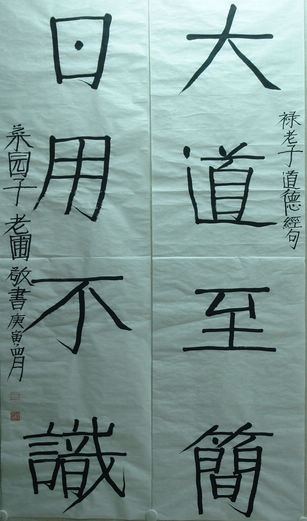 禄老子道德經句
大道至簡
日用不識
菜园子老圃敬書庚寅四月